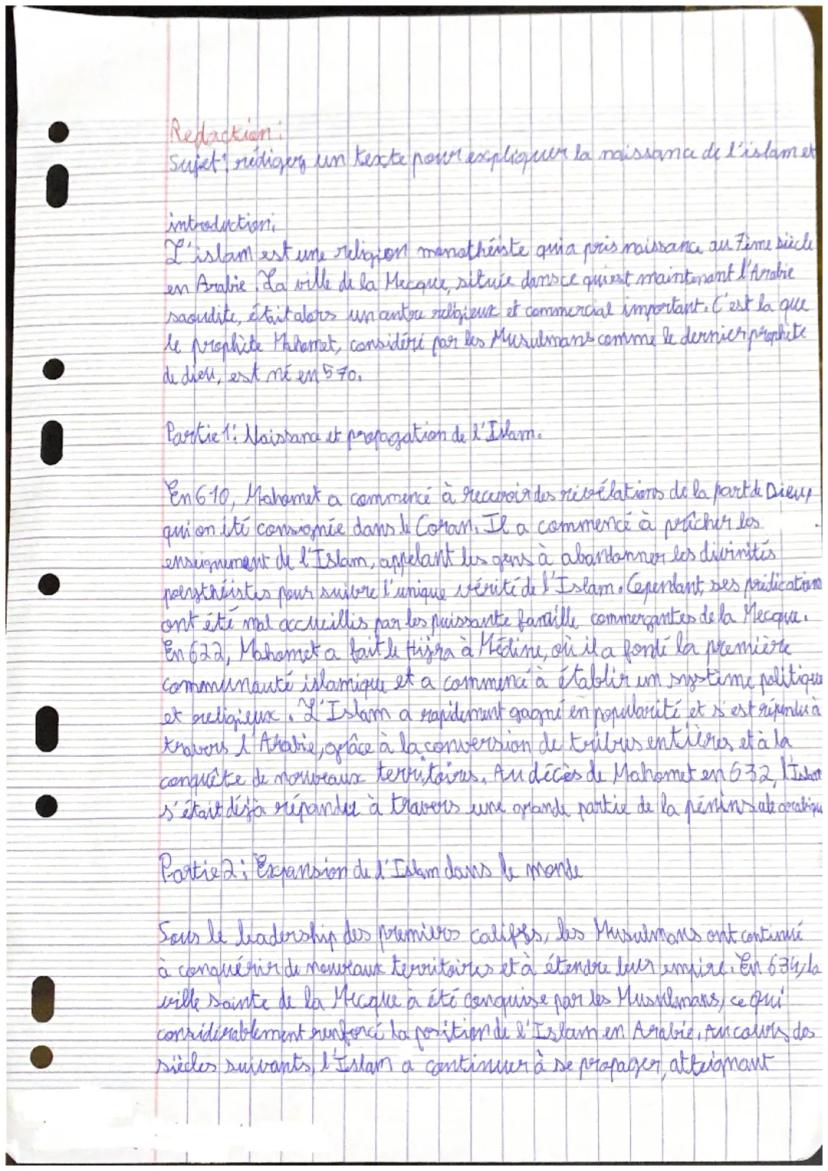 Redaction :
Sujet : rédigers un texte pour expliquer la naissance de l'islam et
introduction,
L'islam est une religion monothéiste qui a pris naissance au 7ième siècle
en Arabie. La ville de la Mecque, située dans ce qui est maintenant l'Arabie
saoudite, était alors un centre religieux et commercial important. C'est la que
le prophète Mahomet, considéré par les Musulmans comme le dernier prophète
de dieu, est né en 570.
Partie 1 : Naissance et propagation de l'Islam.
En 610, Mahomet a commencé à recevoir des révélations de la part de Dieu,
qui on été consignée dans le Coran. Il a commencé à prêcher les
enseignement de l'Islam, appelant les gens à abandonner les divinités
polythéistes pour suivre l'unique vérité de l'Islam. Cependant ses prédications
ont été mal accueillis par les puissante famille commerçantes de la Mecque.
En 622, Mahomet a fait le Hijra à Médine, où il a fondé la première
communauté islamique et a commencé à établir un système politique
et religieux. L'Islam a rapidement gagné en popularité et s'est répendu à
travers l'Arabie, grâce à la conversion de tribus entières, et à la
conquête de nouveaux territoires. Au décès de Mahomet en 632, l'Islam
s'était déja répandu à travers une grande partie de la péninsule arabique
Partie 2 : Expansion de l'Islam dans le monde
Sous le leadership des premiers califfs, les Musulmans ont continué
à conquérir de nouveaux territoires et à étendre leur empire. En 634, la
ville sainte de la Mecque a été conquise par les Musulmans, ce qui
considérablement renforcé la position de l'Islam en Arabie. Au cours des
siècles suivants, l'Islam a continuer à se propager, atteignant